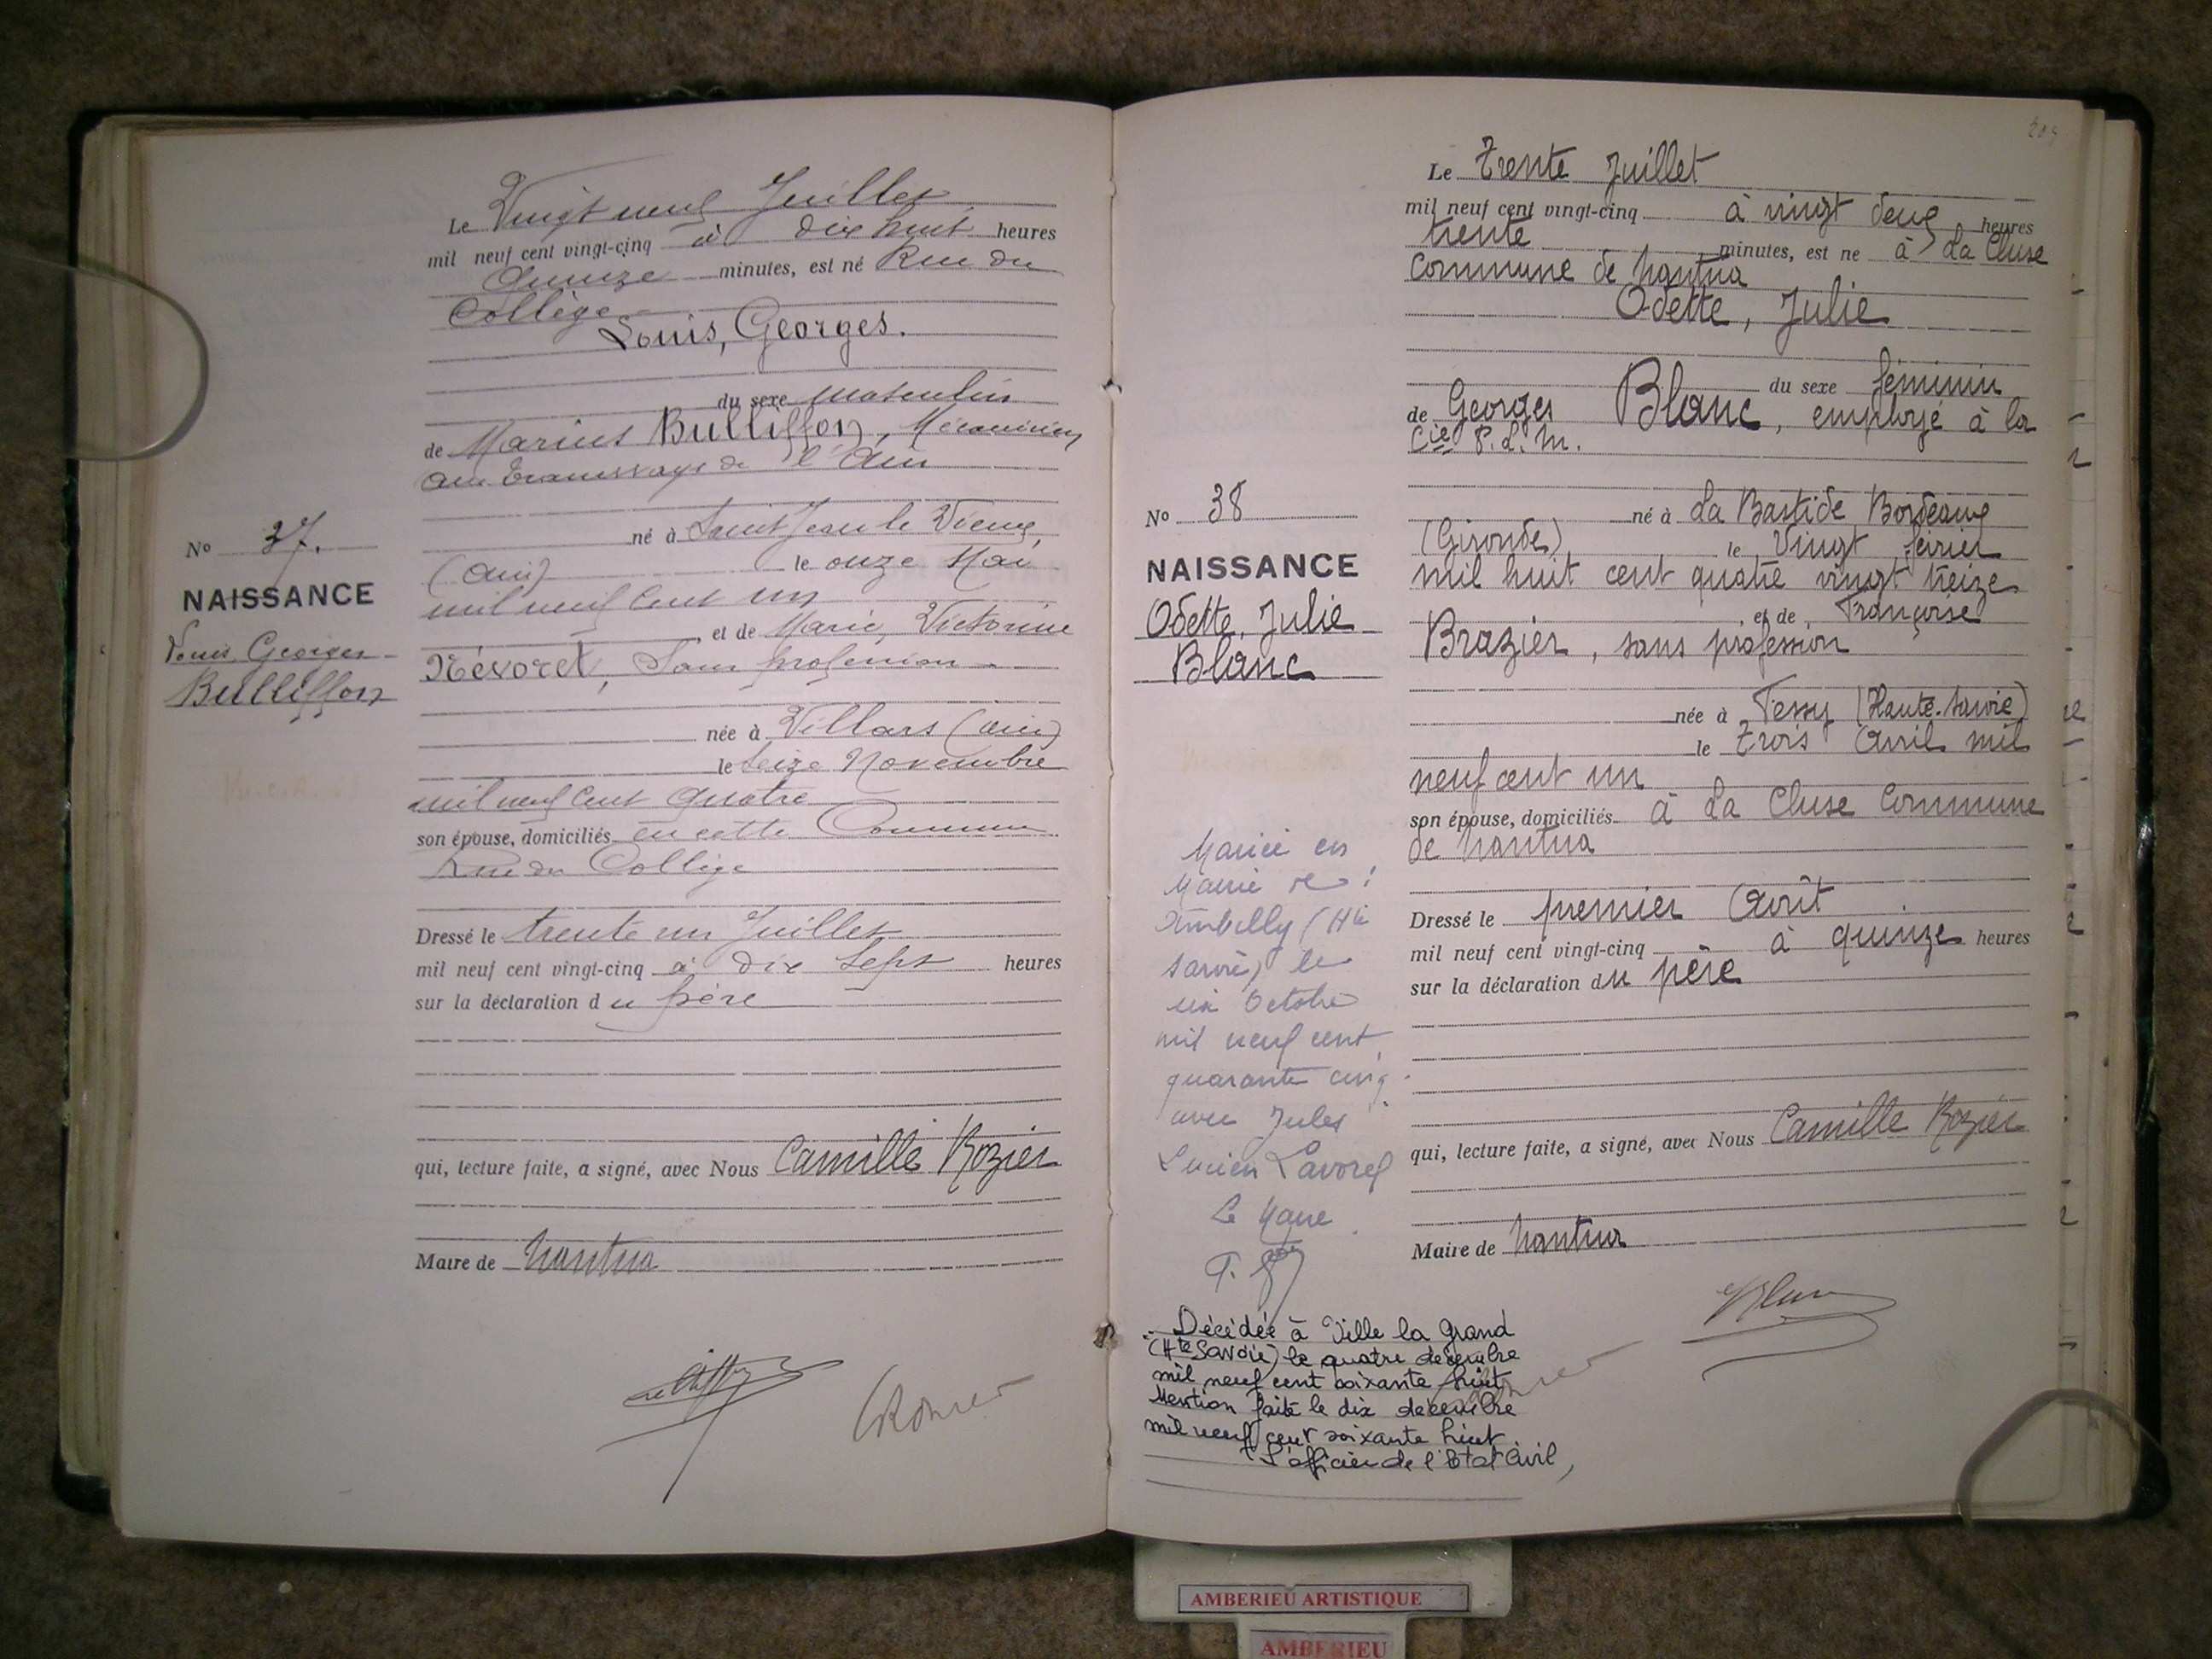 Le Vingt neuf Juillet
mil neuf cent vingt-cinq à dix huit heures
Quinze minutes, est né Rue du
Collège
Louis, Georges.
du sexe masculin
de Marius Bulliffon, Mécanicien
aux Tramways de l'Ain
né à Saint Jean le Vieux,
(Ain) le onze Mai
mil neuf cent un
et de Marie, Victorine
Névoret, Sans profession
née à Villars (Ain)
le Seize Novembre
mil neuf cent quatre
son épouse, domiciliés en cette Commune
Rue du Collège
Dressé le trente un Juillet
mil neuf cent vingt-cinq à dix Sept heures
sur la déclaration du père
qui, lecture faite, a signé, avec Nous Camille Rozier
Maire de Nantua
No 37.
NAISSANCE
Louis Georges
Bulliffon
209
Le Trente Juillet
mil neuf cent vingt-cinq à vingt deux heures
trente minutes, est ne à La Cluse
Commune de Nantua
Odette, Julie
du sexe féminin
de Georges Blanc, employé à la
Cie P.L.M.
né à La Bastide Bordeaux
(Gironde) le Vingt février
mil huit cent quatre vingt treize
et de Françoise
Brazier, sans profession
née à Fessy (Haute-Savoie)
le Trois Avril mil
neuf cent un
son épouse, domiciliés à La Cluse Commune
de Nantua
Dressé le premier Août
mil neuf cent vingt-cinq à quinze heures
sur la déclaration du père
qui, lecture faite, a signé, avec Nous Camille Rozier
Maire de Nantua
Blanc
No 38
NAISSANCE
Odette, Julie
Blanc
Mariée en
Mairie de
Ambilly (Hte
Savoie) le
six Octobre
mil neuf cent
quarante cinq
avec Jules
Lucien Lavorel
Le Maire
Décédée à Ville la Grand
(Hte Savoie) le quatre décembre
mil neuf cent soixante huit
Mention faite le dix décembre
mil neuf cent soixante huit
L'officier de l'Etat Civil,
AMBERIEU ARTISTIQUE
AMBERIEU